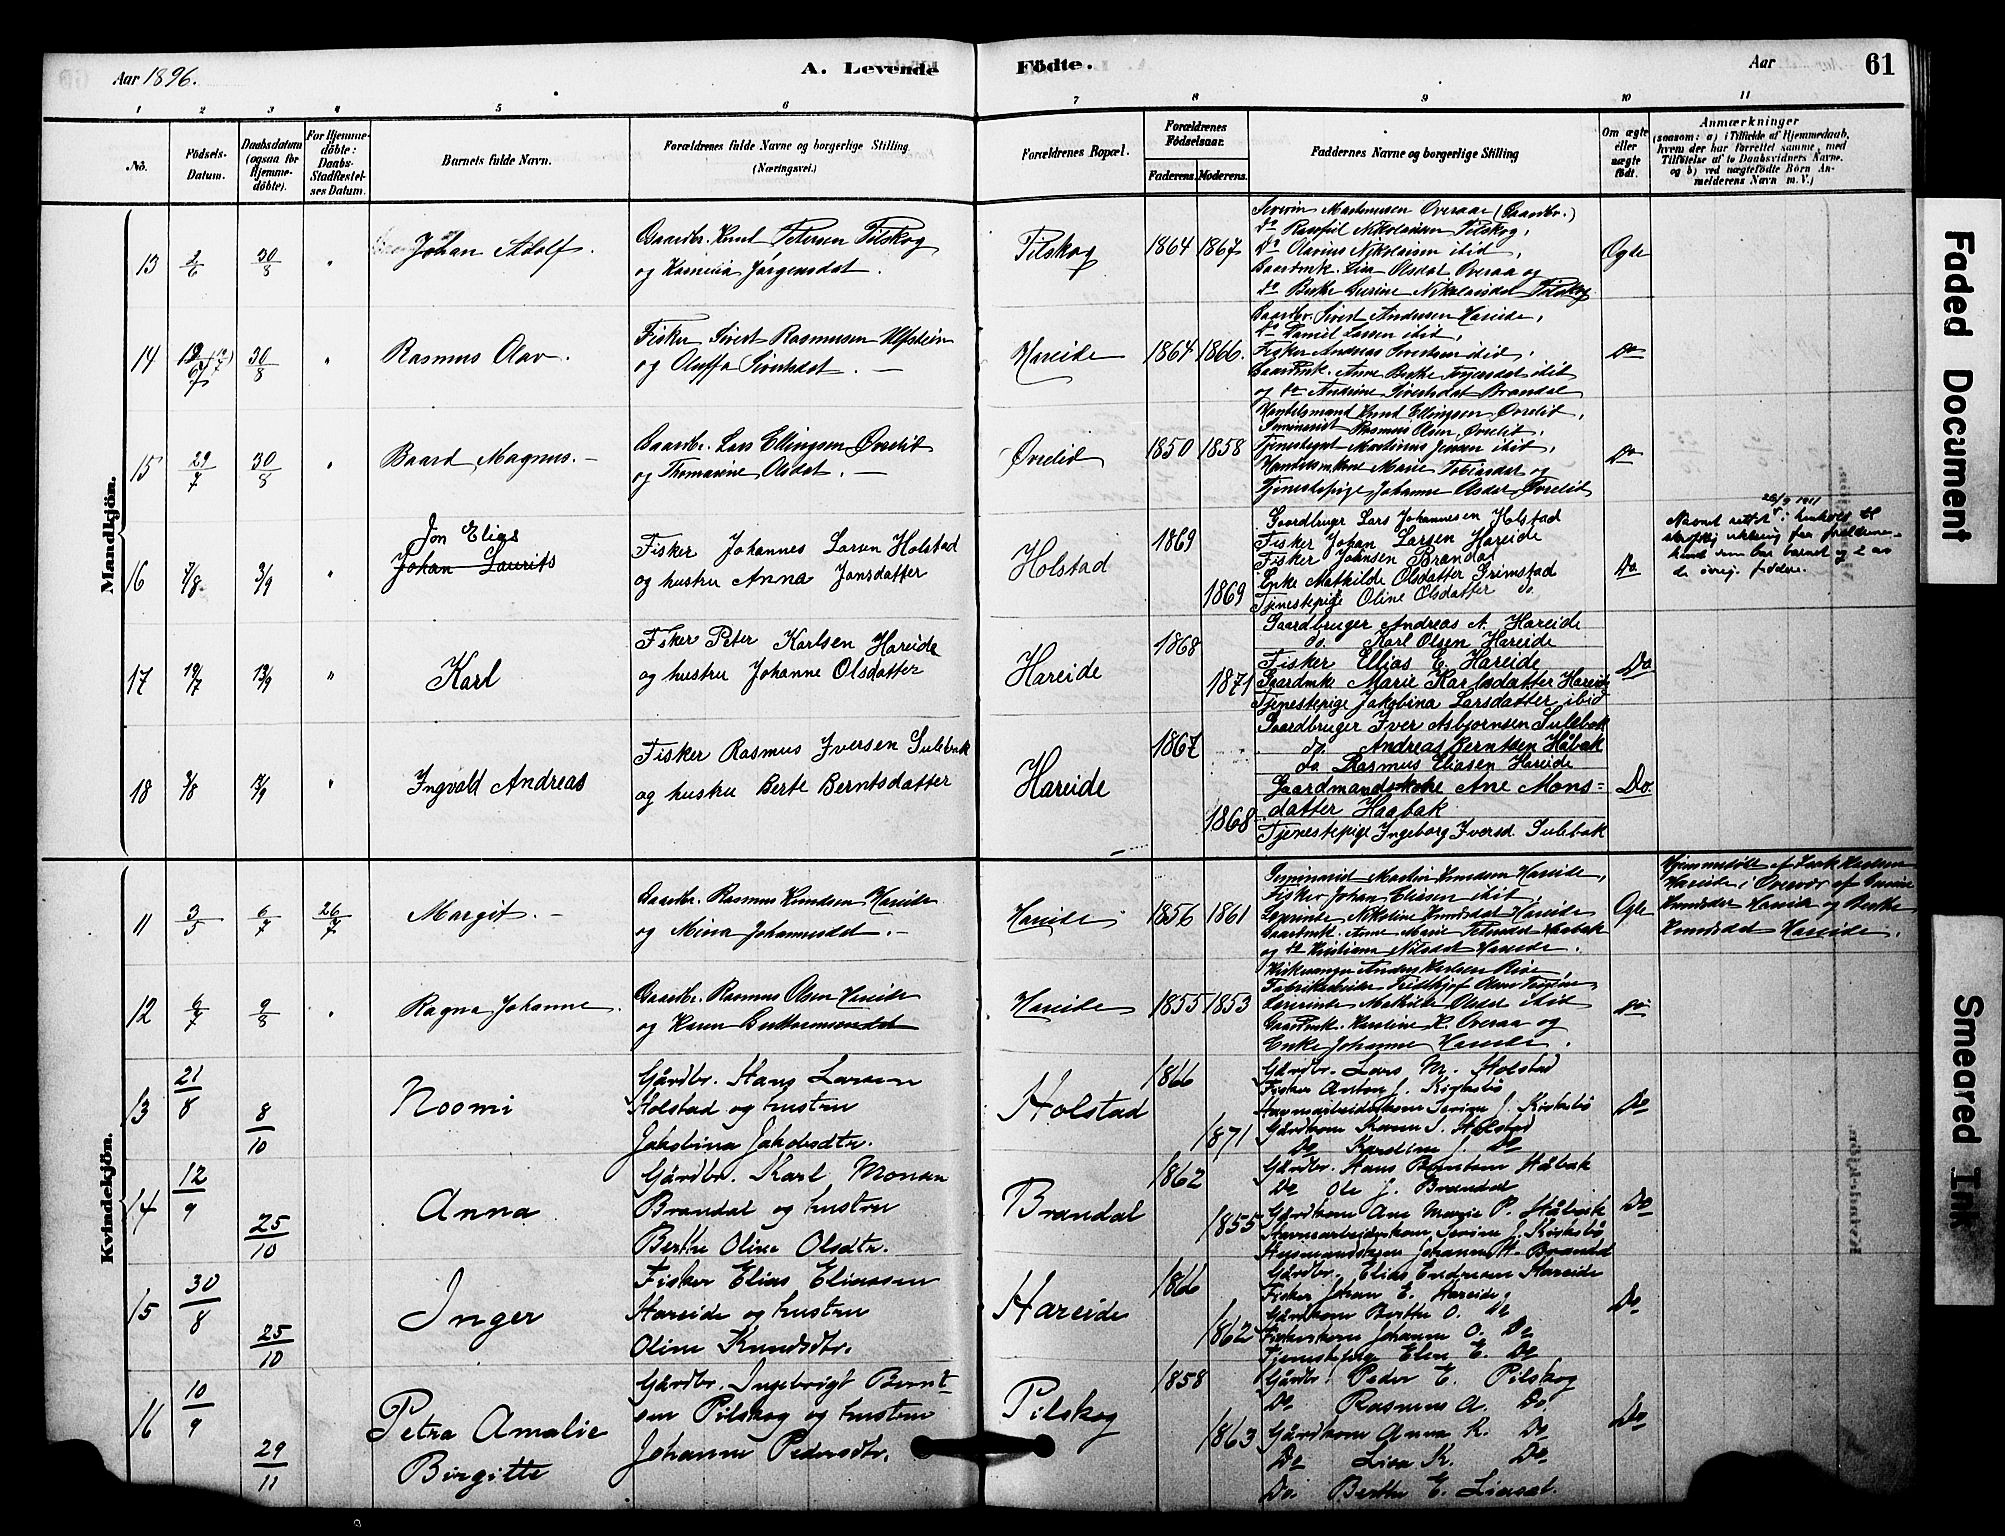 Aar 1896.
A. Levende Födte.
Aar
61
1 2 3 4 5 6 7 8 9 10 11
No.
Födsels-Datum.
Daabsdatum (ogsaa for Hjemme-döbte).
For Hjemme-döbte: Daabs-Stadfæstel-ses Datum.
Barnets fulde Navn.
Forældrenes fulde Navne og borgerlige Stilling (Næringsvei.)
Forældrenes Bopæl.
Forældrenes Födselsaar.
Faderens. Moderens.
Faddernes Navne og borgerlige Stilling
Om ægte eller uægte födt.
Anmærkninger
(saasom: a) i Tilfælde af Hjemmedaab,
hvem der har forrettet samme, med
Tilföielse af to Daabsvidners Navne.
og b) ved uægtefödte Börn An-
melderens Navn m. V.)
Mandkjön.
13 2/6 30/8 "
Johan Adolf.
Gaardbr. Knud Petersen Pilskog
og Jørgensdat.
Pilskog
1864 1867
Severin Overaa (Gaardbr.)
do Nikolaisen Pilskog,
do Olarius Nikolaisen ibid,
Gaardmk. Olsdat Overaa og
do Berthe Nikolaisdat Pilskog
Ægte
14 30/8 "
Rasmus Olav.
Fisker Sivert Rasmussen Ulfstein
og Oluffa Sivertsdat.
Hareide
1864 1866.
Gaardbr. Sivert Andersen Hareide,
do Daniel Larsen ibid,
Fisker Andreas Sivertsen ibid,
Gaardmk. Anne Berthe ibid
og do Andrine Sivertsdat Brandal
Do
15 29/7 30/8 "
Baard Magnus.
Gaardbr. Lars Ellingsen Øvrelid
og Thomasine Olsdat.
Øvrelid
1850 1858
Handelsmand Knud Ellingsen Øvrelid,
Seminarist Rasmus Olsen Øvrelid,
Tjenestegut Martinus Jensen ibid,
Marie Tobiasdat og
Tjenestepige Johanne Olsdat Øvrelid
Do
16 3/8 3/9 "
Jon Elias
Johan Laurits
Fisker Johannes Larsen Holstad
og hustru Anna Jonsdatter
Holstad
1869
1869
Gaardbruger Lars Johannesen Holstad
Fisker Johan Larsen Hareide
Fisker Johnsen Brandal
Enke Mathilde Olsdatter Grimstad
Tjenestepige Oline Olsdatter do.
Do
Navnet rettet i henhold til
skriftlig erklæring fra
som bar barnet og 2 av
de øvrige faddere.
17 19/7 13/9 "
Karl
Fisker Peter Karlsen Hareide
og hustru Johanne Olsdatter
Hareide
1868
1871
Gaardbruger Andreas A. Hareide
do. Karl Olsen Hareide
Fisker Ellias E. Hareide
Gaardmk Marie Karlsdatter Hareide
Tjenestepige Jakobina Larsdatter ibid
Do
18 3/8 "
Ingvald Andreas
Fisker Rasmus Iversen Sulebak
og hustru Berte Berntsdatter
Hareide
1867
1868
Gaardbruger Iver Asbjørnsen Sulebak
do. Andreas Berntsen Håbak
do Rasmus Eliasen Hareide
Gaardmandskone Ane Mons=
datter Haabak
Tjenestepige Ingeborg Iversd. Sulebak
Do.
Kvindekjön.
11 6/7 26/7
Margit.
Gaardbr. Rasmus Knudsen Hareide
og Mina Johannesdat.
Hareide
1856 1861
Seminarist Martin Knudsen Hareide,
Fisker Johan Eliasen ibid,
Nikoline Knudsdat Hareide
Gaardmk. Anne Marie Haabak
og do Kristiane Nilsdat Hareide.
Ægte
Hjemmedøbt af
Hareide i Overvær af
Hareide og Berthe
Knudsdat Hareide.
12 9/8 "
Ragna Johanne.
Gaardbr. Rasmus Olsen Hareide
og Karen
Hareide
1855 1853
Kirkesanger Anders Riise,
Mathilde Olsdat ibid
Gaardmk. Karoline K. Overaa og
Enke Johanne Hareide.
do
13 21/8 8/10
Noomi
Gårdbr. Hans Larsen
Holstad og hustru
Jakobina Jakobsdtr.
Holstad
1866
1871
Gårdbr. Lars M. Holstad
Fisker Anton J. Kirkebø
Havnearbeiderkone Severine J. Kirkebø
Gårdkone Karen S. Holstad
Do Karoline J. Do
Do
14 12/9 25/10
Anna
Gårdbr. Karl Monsen
Brandal og hustru
Berthe Oline Olsdtr.
Brandal
1862
1855
Gårdbr. Hans Berntsen Håbak
Do Ole J. Brandal
Gårdkone Ane Marie P. Håbak
Havnearbeiderkone Severine J. Kirkebø
Husmandskone Johanne H. Brandal
Do
15 30/8 25/10
Inger
Fisker Elias Eliassen
Hareide og hustru
Oline Knudsdtr.
Hareide
1866
1862
Gårdbr. Elias Endresen Hareide
Fisker Johan E. Hareide,
Gårdkone Berthe O. Do
Fiskerkone Johanne O. Do
Tjenestepige Elen E. Do
Do
16 10/9 29/11
Petra Amalie
Birgitte
Gårdbr. Ingebrigt Bernt-
sen Pilskog og hustru
Johanne Pedersdtr.
Pilskog
1858
1863
Gårdbr. Peder E. Pilskog
Do Rasmus A. Do.
Gårdkone Anna K. Do
Do Lisa K. Do
Do. Berthe E. Liaset.
Do
Faded Document
Smeared Ink